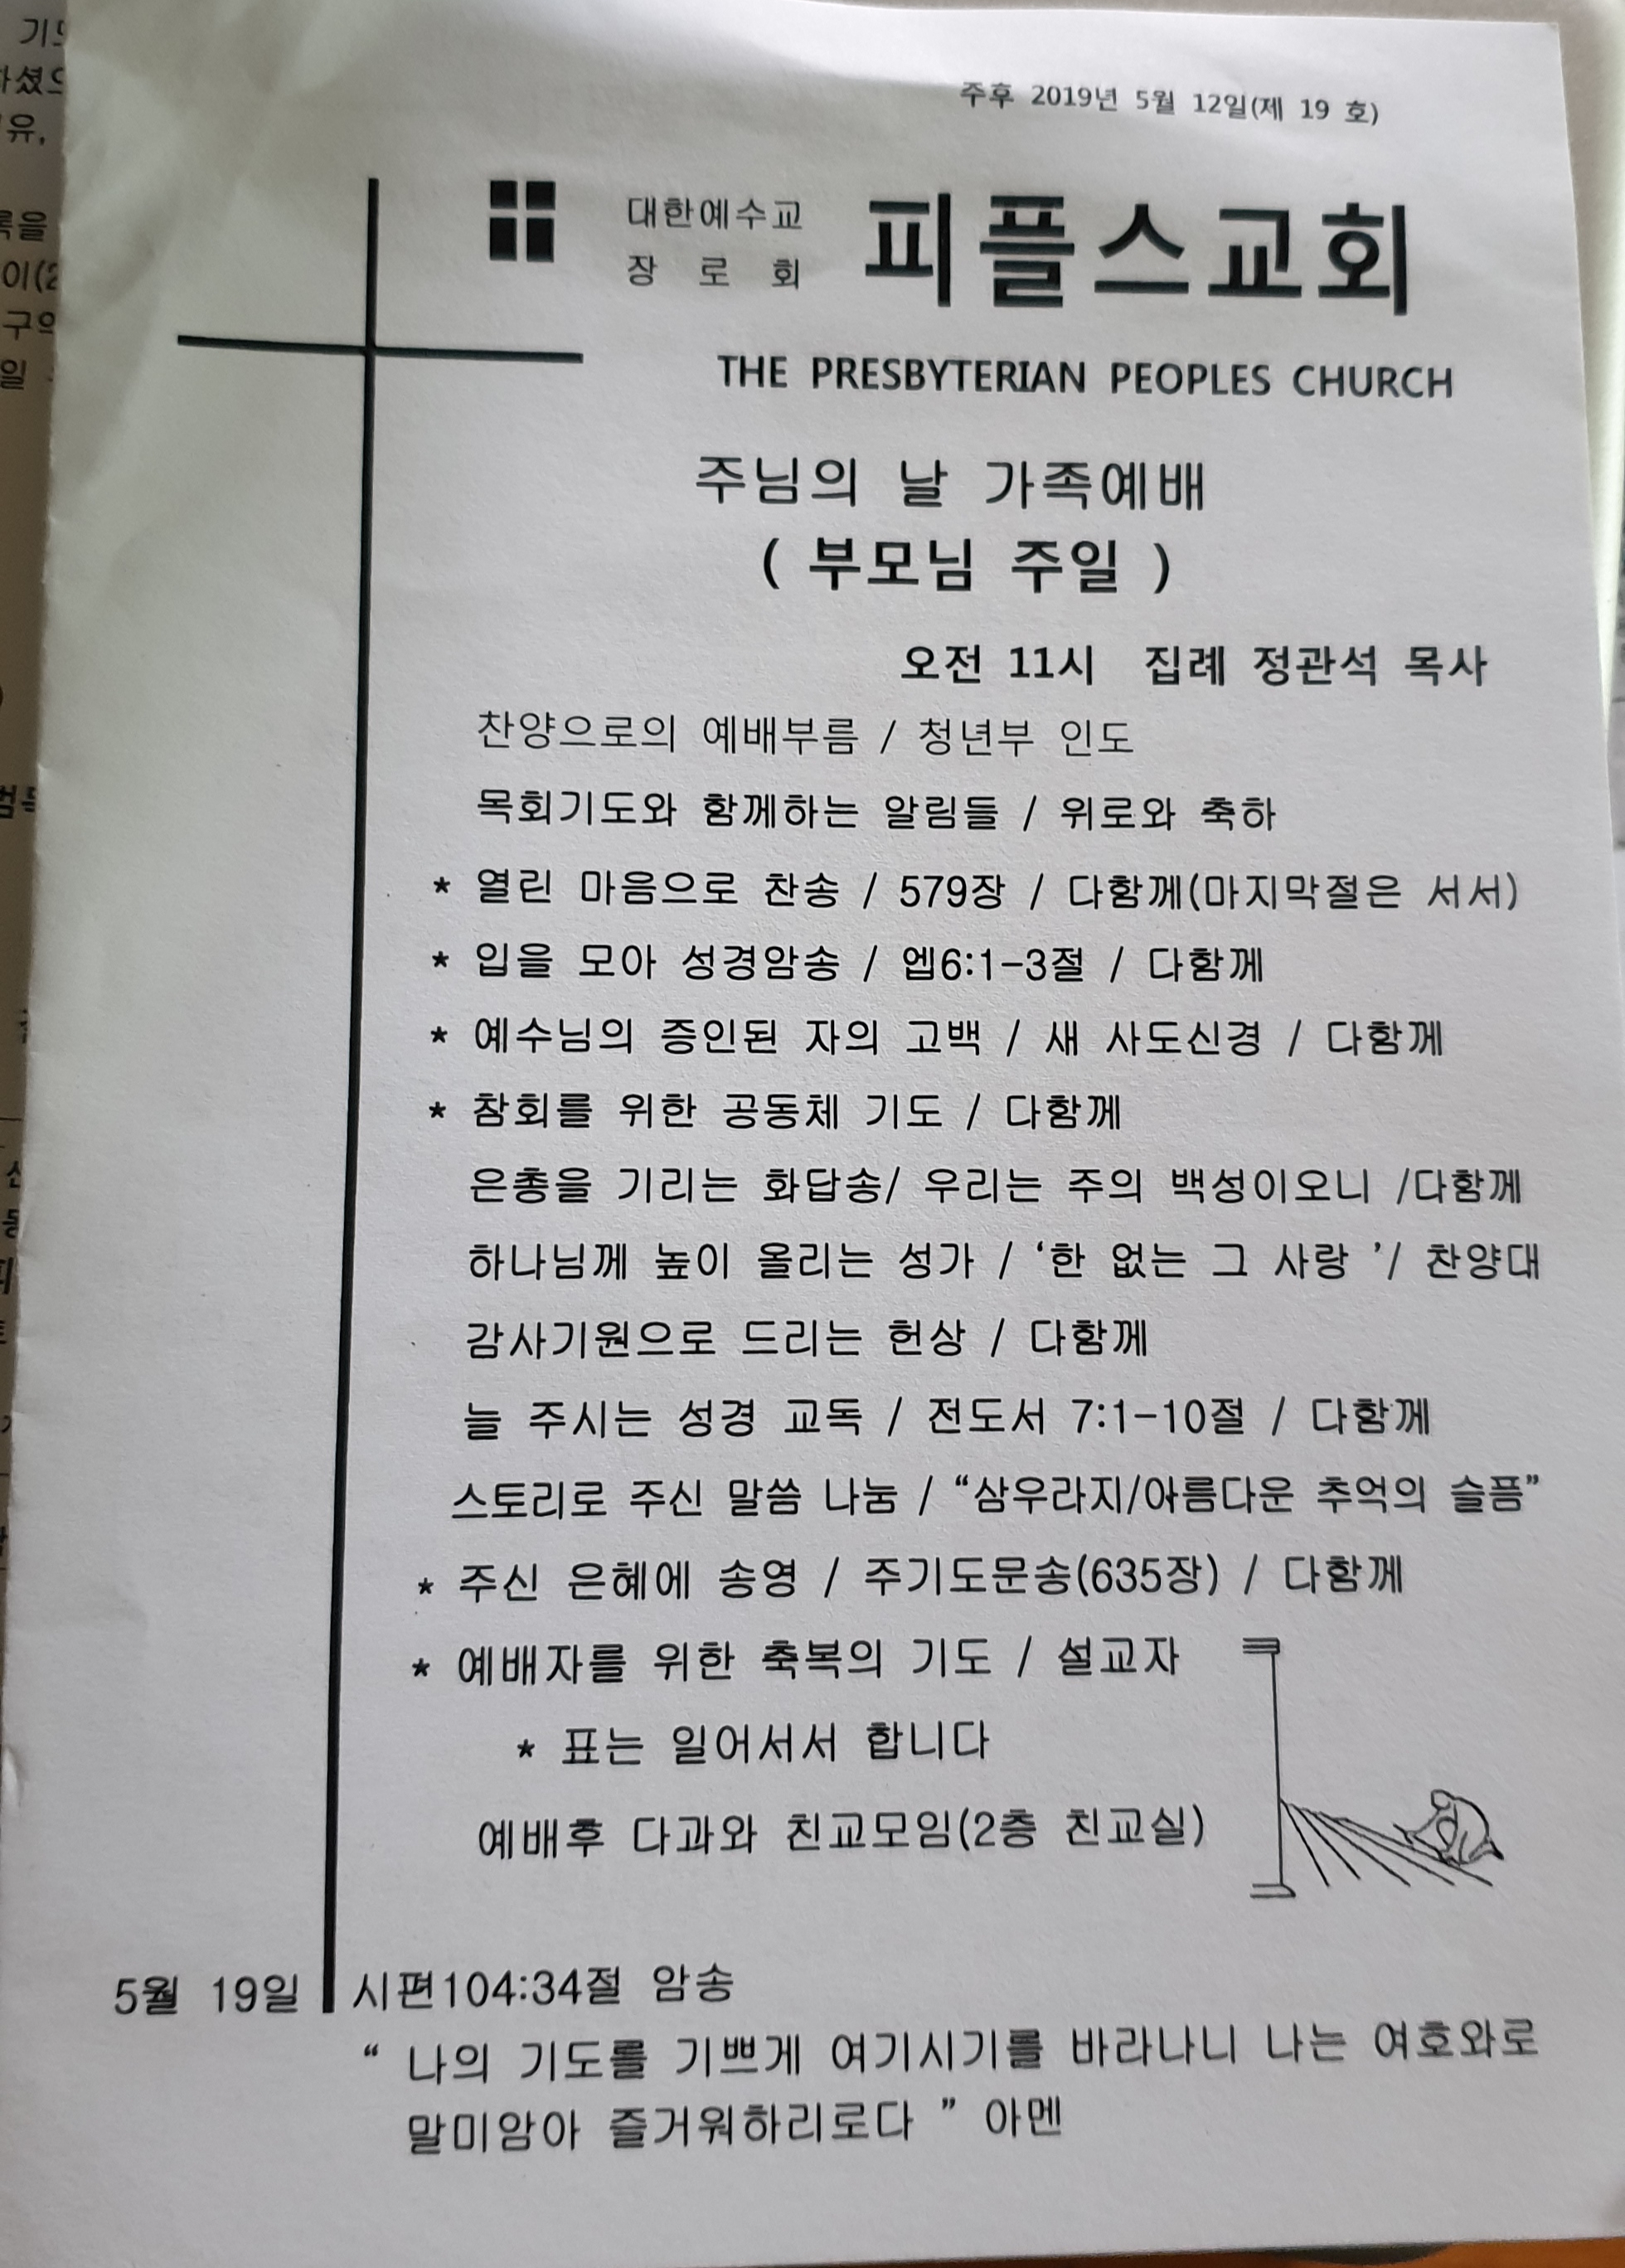 주후 2019년 5월 12일(제 19 호)
대한예수교
장 로 회
피플스교회
THE PRESBYTERIAN PEOPLES CHURCH
주님의 날 가족예배
( 부모님 주일 )
오전 11시 집례 정관석 목사
찬양으로의 예배부름 / 청년부 인도
목회기도와 함께하는 알림들 / 위로와 축하
* 열린 마음으로 찬송 / 579장 / 다함께(마지막절은 서서)
* 입을 모아 성경암송 / 엡6:1-3절 / 다함께
* 예수님의 증인된 자의 고백 / 새 사도신경 / 다함께
* 참회를 위한 공동체 기도 / 다함께
은총을 기리는 화답송/ 우리는 주의 백성이오니 /다함께
하나님께 높이 올리는 성가 / ‘한 없는 그 사랑 ’/ 찬양대
감사기원으로 드리는 헌상 / 다함께
늘 주시는 성경 교독 / 전도서 7:1-10절 / 다함께
스토리로 주신 말씀 나눔 / “삼우라지/아름다운 추억의 슬픔”
* 주신 은혜에 송영 / 주기도문송(635장) / 다함께
* 예배자를 위한 축복의 기도 / 설교자
* 표는 일어서서 합니다
예배후 다과와 친교모임(2층 친교실)
5월 19일 시편104:34절 암송
“ 나의 기도를 기쁘게 여기시기를 바라나니 나는 여호와로
말미암아 즐거워하리로다 ” 아멘